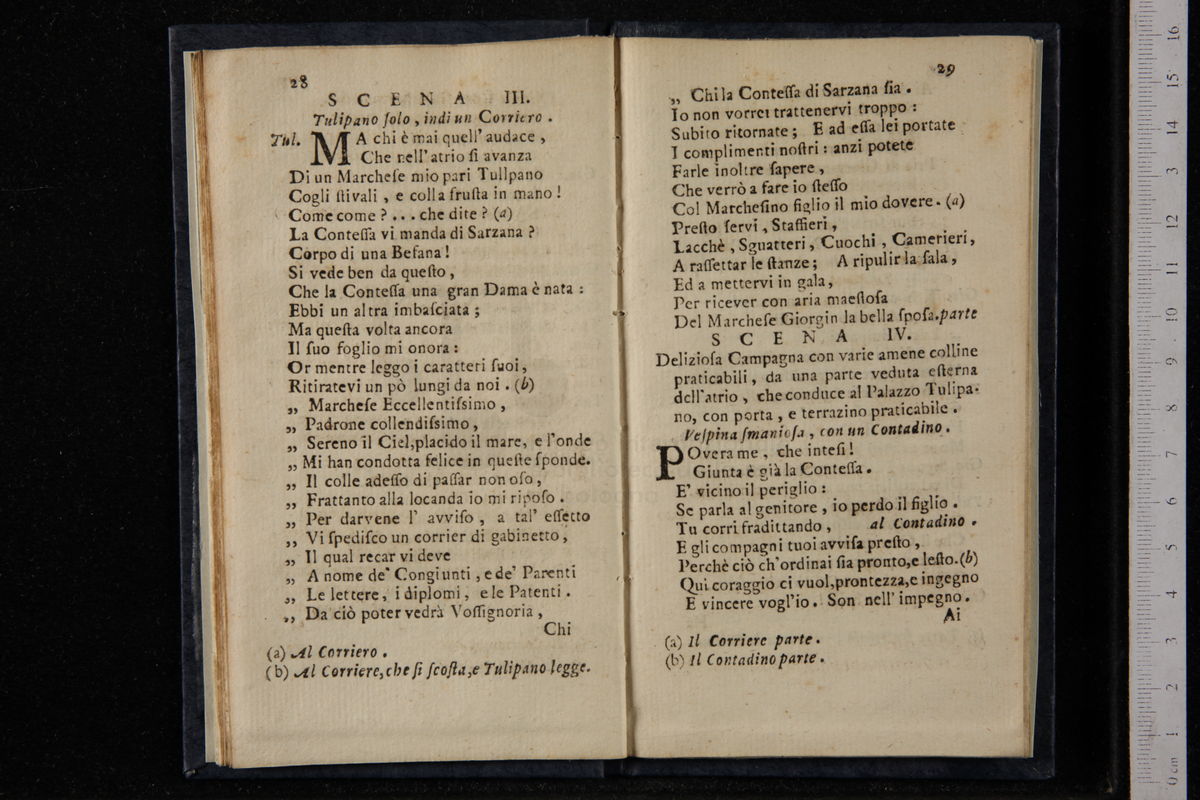 28
SCENA III.
Tulipano ſolo, indi un Corriero.
Tul. MA chi è mai quell' audace,
Che nell' atrio ſi avanza
Di un Marcheſe mio pari Tulipano
Cogli ſtivali, e colla fruſta in mano!
Come come?... che dite? (a)
La Conteſſa vi manda di Sarzana?
Corpo di una Befana!
Si vede ben da queſto,
Che la Conteſſa una gran Dama è nata:
Ebbi un altra imbaſciata;
Ma queſta volta ancora
Il ſuo foglio mi onora:
Or mentre leggo i caratteri ſuoi,
Ritiratevi un pò lungi da noi. (b)
„ Marcheſe Eccellentiſsimo,
„ Padrone collendiſsimo,
„ Sereno il Ciel, placido il mare, e l'onde
„ Mi han condotta felice in queſte ſponde.
„ Il colle adeſſo di paſſar non oſo,
„ Frattanto alla locanda io mi ripoſo.
„ Per darvene l' avviſo, a tal' effetto
„ Vi ſpediſco un corrier di gabinetto,
„ Il qual recar vi deve
„ A nome de' Congiunti, e de' Parenti
„ Le lettere, i diplomi, e le Patenti.
„ Da ciò poter vedrà Voſſignoria,
Chi
(a) Al Corriero.
(b) Al Corriere, che ſi ſcoſta, e Tulipano legge.
29
„ Chi la Conteſſa di Sarzana ſia.
Io non vorrei trattenervi troppo:
Subito ritornate; E ad eſſa lei portate
I complimenti noſtri: anzi potete
Farle inoltre ſapere,
Che verrò a fare io ſteſſo
Col Marcheſino figlio il mio dovere. (a)
Preſto ſervi, Staffieri,
Lacchè, Sguatteri, Cuochi, Camerieri,
A raſſettar le ſtanze; A ripulir la ſala,
Ed a mettervi in gala,
Per ricever con aria maeſtoſa
Del Marcheſe Giorgin la bella ſpoſa. parte
SCENA IV.
Delizioſa Campagna con varie amene colline
praticabili, da una parte veduta eſterna
dell'atrio, che conduce al Palazzo Tulipa-
no, con porta, e terrazino praticabile.
Veſpina ſmanioſa, con un Contadino.
POvera me, che inteſi!
Giunta è già la Conteſſa.
E' vicino il periglio:
Se parla al genitore, io perdo il figlio.
Tu corri fradittando, al Contadino.
E gli compagni tuoi avviſa preſto,
Perchè ciò ch'ordinai ſia pronto, e leſto. (b)
Qui coraggio ci vuol, prontezza, e ingegno
E vincere vogl'io. Son nell' impegno.
Ai
(a) Il Corriere parte.
(b) Il Contadino parte.